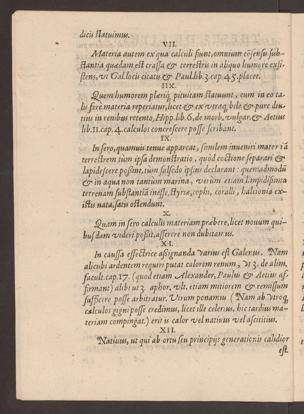 dicij statuimus.
VII.
Materia autem ex qua calculi fiunt, omnium cõsensu sub-
stantia quædam est crassa & terrestris in aliquo humore exsi-
stens, vt Gal. locis citatis & Paul. lib. 3. cap. 45. placet.
IIX.
Quem humorem pleriq; pituitam statuunt, cum in eo ta-
lis ferè materia reperiatur, licet & ex vtraq; bile & pure diu-
tius in renibus retento, Hipp. lib. 6. de morb. vulgar. & Aetius
lib. 11. cap. 4. calculos concrescere posse scribant.
IX.
In sero, quamuis tenue appareat, similem inueniri materiã
terrestrem tum ipsa demonstratio, quòd coctione separari &
lapidescere possint, tum salsedo ipsius declarant: quemadmodũ
& in aqua non tantùm marina, verùm etiam limpidissima
terrenam substantiã inesse, styriæ, tophi, coralli, halcionia ex-
istis nata, satis ostendunt.
X.
Quem in sero calculis materiam præbere, licet nouum qui-
busdam videri possit, asserere non dubitamus.
XI.
In caussa effectrice assignanda varius est Galenus. Nam
alicubi ardentem requiri putat calorem renum, vt 3. de alim.
facult. cap. 17. (quod etiam Alexander, Paulus & Aetius af-
firmant) alibi vt 3. aphor. vlt. etiam mitiorem & remissum
sufficere posse arbitratur. Vtrum ponamus (Nam ab vtroq;
calculos gigni posse credimus, licet ille celerius, hic tardius ma-
teriam compingat) erit is calor vel natiuus vel ascititius.
XII.
Natiuus, ut qui ab ortu seu principijs generationis calidior
est.